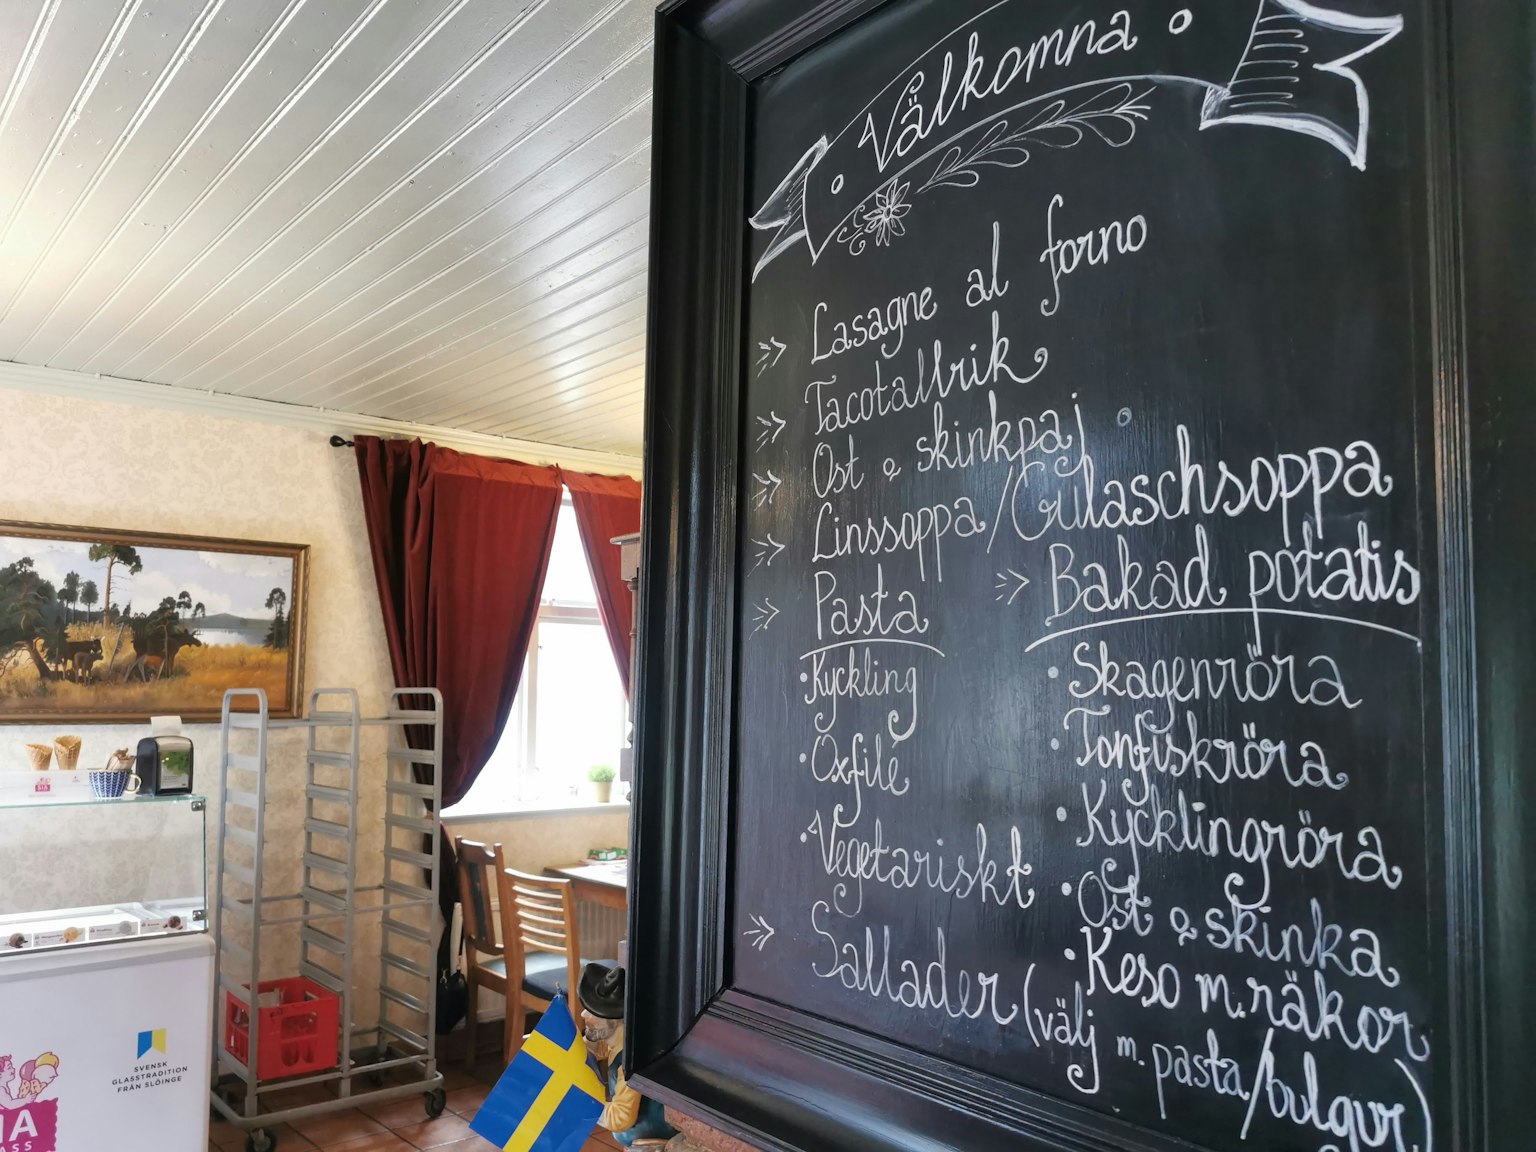 Välkomna
Lasagne al forno
Tacotallrik
Ost o skinkpaj
Linssoppa/Gulaschsoppa
Pasta
• Kyckling
• Oxfilé
• Vegetariskt
Bakad potatis
• Skagenröra
• Tonfiskröra
• Kycklingröra
• Ost o skinka
• Keso m. räkor
Sallader (välj m. pasta/bulgur)
SVENSK
GLASSTRADITION
FRÅN SLÖINGE